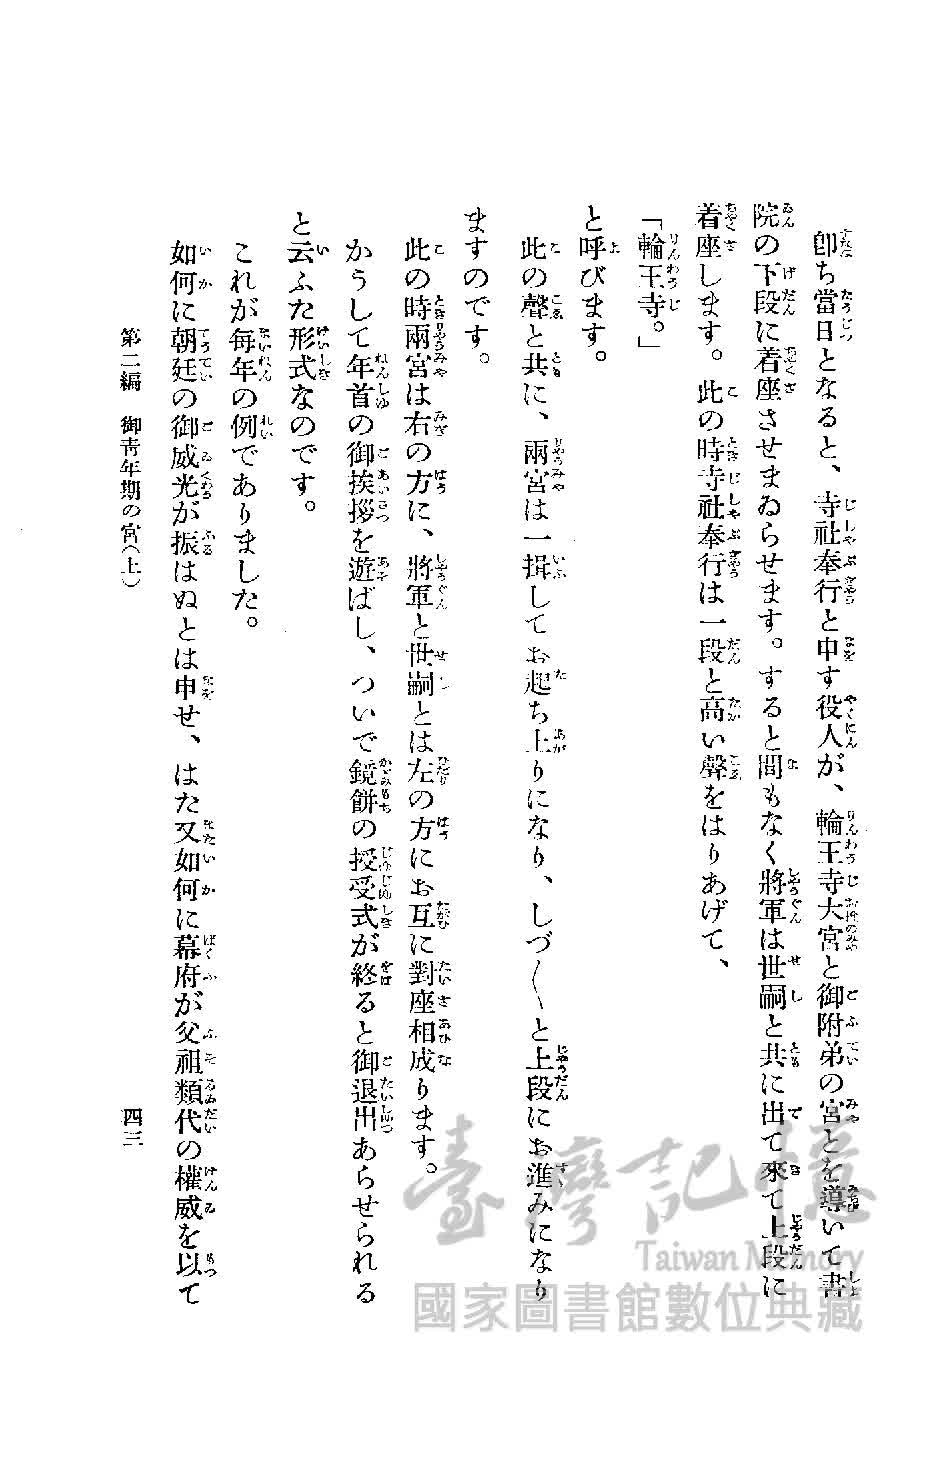 卽ち當日となると、寺社奉行と申す役人が、輪王寺大宮と御附弟の宮とを導いて書
院の下段に着座させまゐらせます。すると間もなく將軍は世嗣と共に出て來て上段に
着座します。此の時寺社奉行は一段と高い聲をはりあげて、
「輪王寺。」
と呼びます。
此の聲と共に、兩宮は一揖してお起ち上りになり、しづ〱と上段にお進みになり
ますのです。
此の時兩宮は右の方に、將軍と世嗣とは左の方にお互に對座相成ります。
かうして年首の御挨拶を遊ばし、ついで鏡餅の授受式が終ると御退出あらせられる
と云ふた形式なのです。
これが每年の例でありました。
如何に朝廷の御威光が振はぬとは申せ、はた又如何に幕府が父祖類代の權威を以て
第二編 御靑年期の宮(上)
四三
臺灣記憶
Taiwan Memory
國家圖書館數位典藏